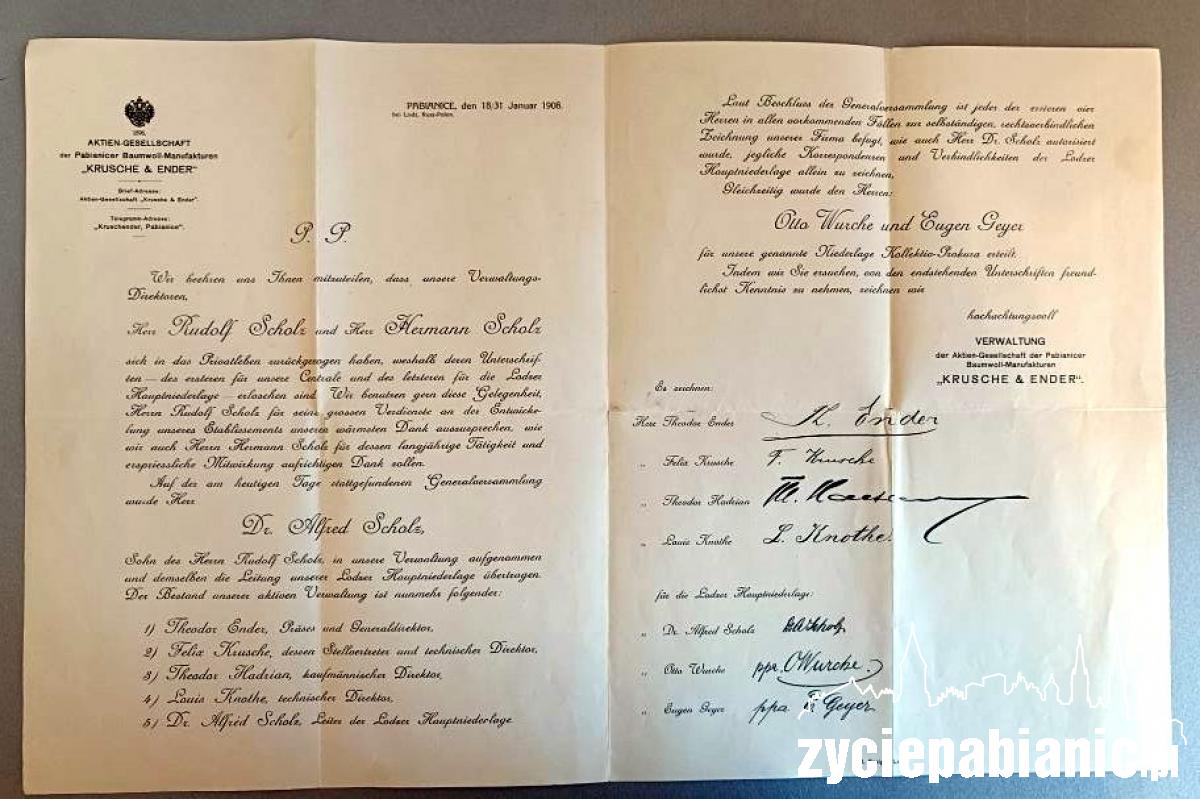 1896.
AKTIEN-GESELLSCHAFT
der Pabianicer Baumwoll-Manufakturen
„KRUSCHE & ENDER“
Brief-Adresse:
Aktien-Gesellschaft „Krusche & Ender“.
Telegramm-Adresse:
„Kruschender, Pabianice“.
PABIANICE, den 18/31 Januar 1908.
bei Lodz, Russ-Polen.
P. P.
Wir beehren uns Ihnen mitzuteilen, dass unsere Verwaltungs-
Direktoren,
Herr Rudolf Scholz und Herr Hermann Scholz
sich in das Privatleben zurückgezogen haben, weshalb deren Unterschrif-
ten — des ersteren für unsere Centrale und des letzteren für die Lodzer
Hauptniederlage — erloschen sind. Wir benutzen gern diese Gelegenheit,
Herrn Rudolf Scholz für seine grossen Verdienste an der Entwicke-
lung unseres Etablissements unseren wärmsten Dank auszusprechen, wie
wir auch Herrn Hermann Scholz für dessen langjährige Tätigkeit und
erspriessliche Mitwirkung aufrichtigen Dank zollen.
Auf der am heutigen Tage stattgefundenen Generalversammlung
wurde Herr
Dr. Alfred Scholz,
Sohn des Herrn Rudolf Scholz, in unsere Verwaltung aufgenommen
und demselben die Leitung unserer Lodzer Hauptniederlage übertragen.
Der Bestand unserer aktiven Verwaltung ist nunmehr folgender:
1) Theodor Ender, Präses und Generaldirektor,
2) Felix Krusche, dessen Stellvertreter und technischer Direktor,
3) Theodor Hadrian, kaufmännischer Direktor,
4) Louis Knothe, technischer Direktor,
5) Dr. Alfred Scholz, Leiter der Lodzer Hauptniederlage.
Laut Beschluss der Generalversammlung ist jeder der ersteren vier
Herren in allen vorkommenden Fällen zur selbständigen, rechtsverbindlichen
Zeichnung unserer Firma befugt, wie auch Herr Dr. Scholz autorisiert
wurde, jegliche Korrespondenzen und Verbindlichkeiten der Lodzer
Hauptniederlage allein zu zeichnen.
Gleichzeitig wurde den Herren:
Otto Wurche und Eugen Geyer
für unsere genannte Niederlage Kollektiv-Prokura erteilt.
Indem wir Sie ersuchen, von den endstehenden Unterschriften freund-
lichst Kenntnis zu nehmen, zeichnen wir
hochachtungsvoll
VERWALTUNG
der Aktien-Gesellschaft der Pabianicer
Baumwoll-Manufakturen
„KRUSCHE & ENDER“.
Es zeichnen:
Herr Theodor Ender Th. Ender
„ Felix Krusche F. Krusche
„ Theodor Hadrian Th.
„ Louis Knothe L. Knothe
für die Lodzer Hauptniederlage:
„ Dr. Alfred Scholz Dr A Scholz
„ Otto Wurche ppr. O Wurche
„ Eugen Geyer ppa E Geyer
zyciepabianic.pl